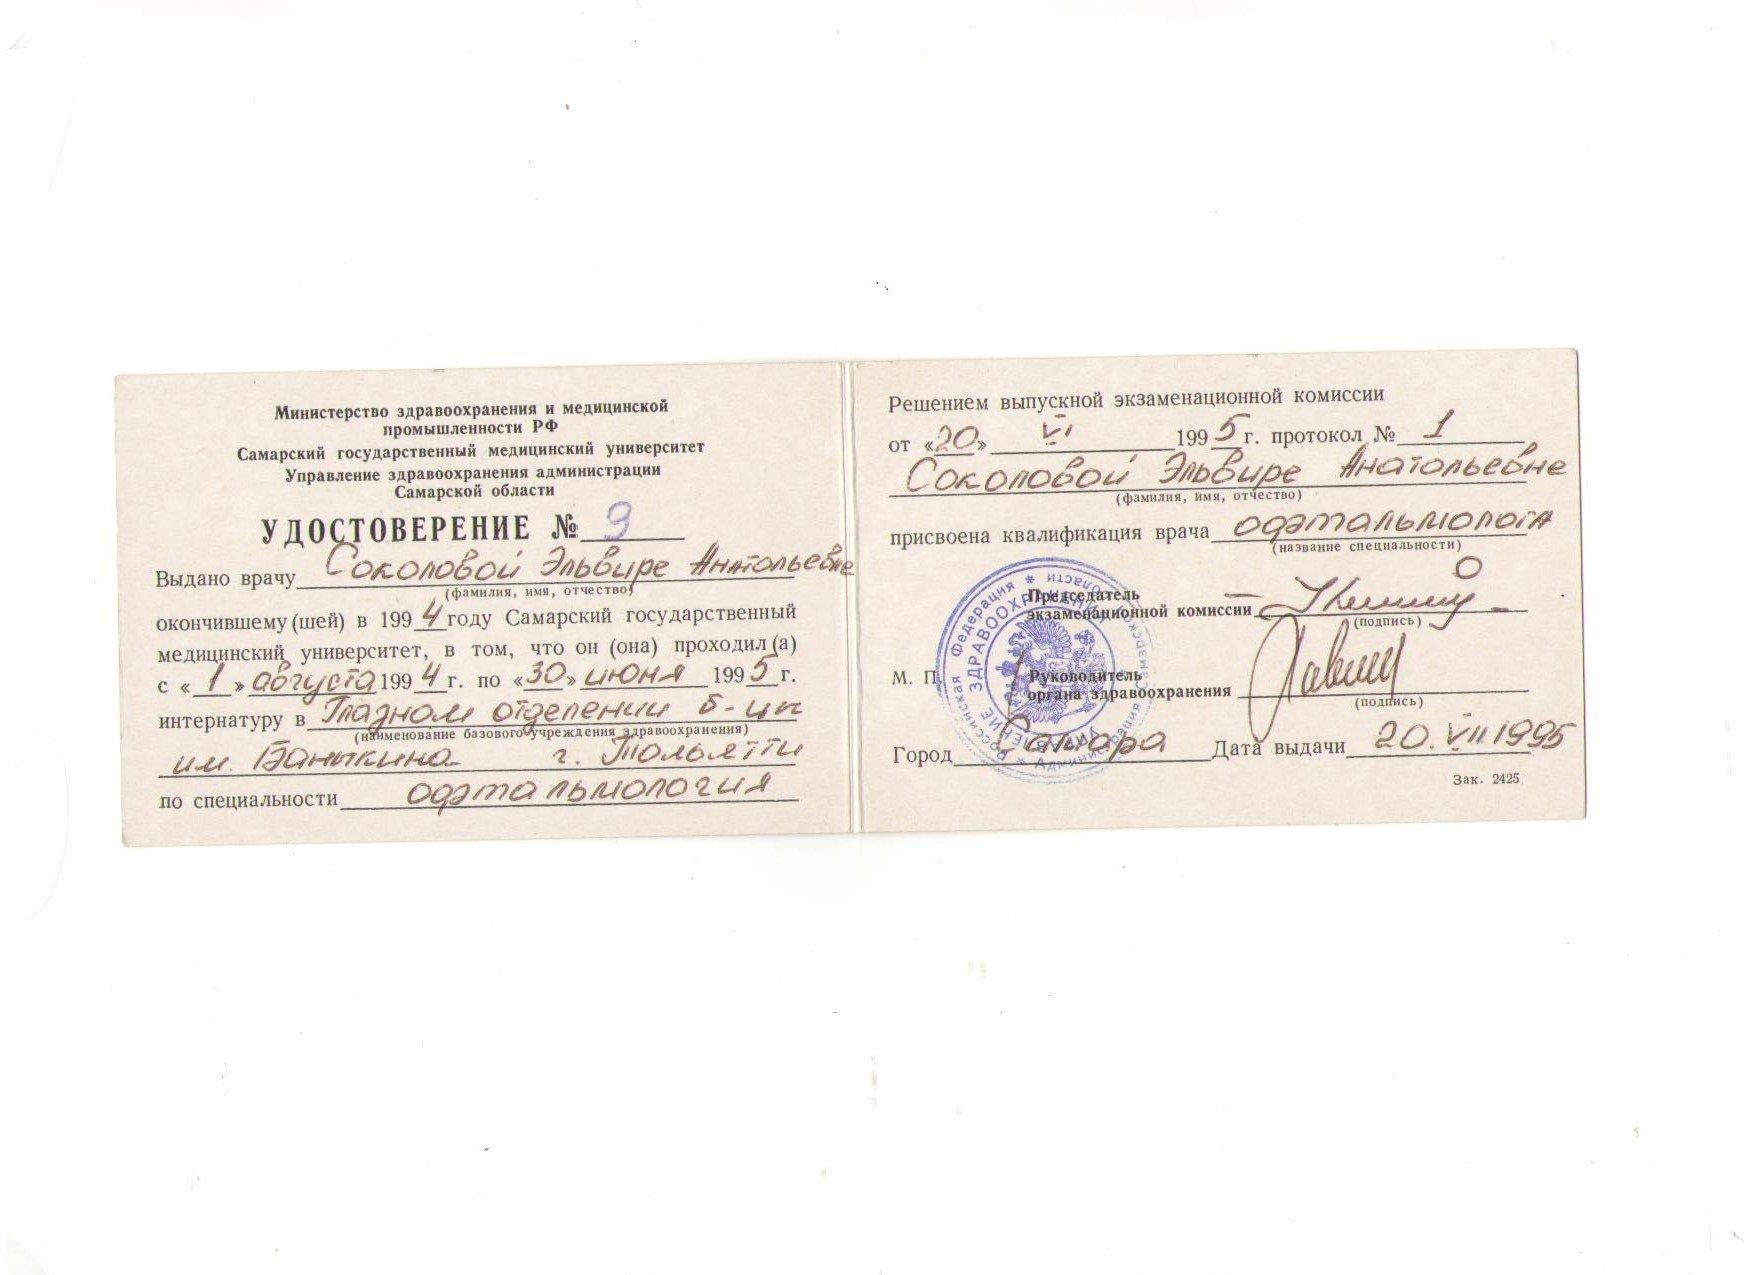 Министерство здравоохранения и медицинской
промышленности РФ
Самарский государственный медицинский университет
Управление здравоохранения администрации
Самарской области
УДОСТОВЕРЕНИЕ № 9
Выдано врачу Соколовой Эльвире Анатольевне
(фамилия, имя, отчество)
окончившему (шей) в 1994 году Самарский государственный
медицинский университет, в том, что он (она) проходил (а)
с «1» августа 1994 г. по «30» июня 1995 г.
интернатуру в Глазном отделении б-цы
(наименование базового учреждения здравоохранения)
им. Баныкина г. Тольятти
по специальности офтальмология
Решением выпускной экзаменационной комиссии
от «20» VI 1995 г. протокол № 1
Соколовой Эльвире Анатольевне
(фамилия, имя, отчество)
присвоена квалификация врача офтальмолога
(название специальности)
Председатель
экзаменационной комиссии
(подпись)
М. П. Руководитель
органа здравоохранения
(подпись)
Город Самара Дата выдачи 20.VII 1995
Зак. 2425
Российская Федерация * Администрация Самарской области *
УПРАВЛЕНИЕ ЗДРАВООХРАНЕНИЯ